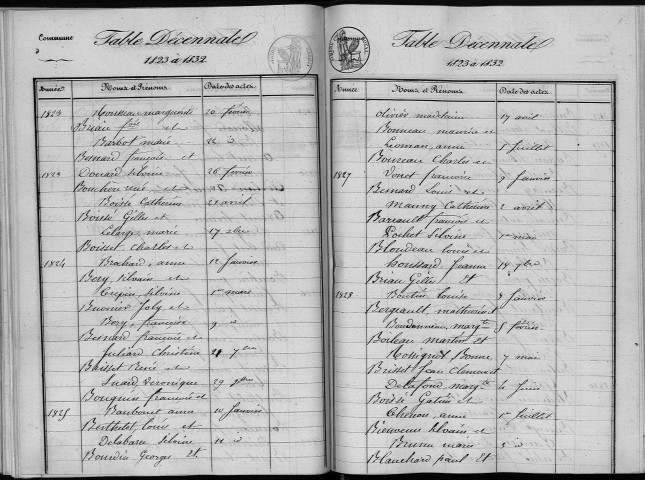 Commune
à
Table Décennale
1823 à 1832
Année
Noms et Prénoms
Date des actes
1823 Rousseau marguerite 20 février
Briau et
Barbot marie
Besnard françois et
1823 Douard silvine 26 février
Bouchou rené et
Boissé Catherine 22 avril
Boissé Gilles et
Lelarge marie 17
Boisset Charles et
1824 Brochard anne 12 janvier
Bory silvain et
Crepin silvine 1er mars
Bory françoise 9 d
Besnard françois et
Julliard Christine 21 7bre
Boisset René et
Suard Veronique 29
Bouguin françois et
1825 Baubouet anne 10 janvier
Berthelot louis et
Delabarre silvine 11 d
Bourdin Georges et
Table Décennale
1823 à 1832
Année
Noms et Prénoms
Date des actes
Olivier madelaine 17 avril
Bonneau maurice et
Leomant anne 5 juillet
Bourreau Charles et
1827 Vouet françoise 9 janvier
Besnard Louis et
Mauny Catherine 2 avril
Barrault françois et
Pochet silvine 1er mai
Blondeau louis et
houssard Jeanne 18 7bre
Briau Gilles et
1828 Boutin louise 8 janvier
Bergault, mathurin et
Bourdonneau, margte 5 février
Boileau martin et
Rossignol Bonne 7 mai
Brisset Jean Clement
Delafond margte 4 juin
Boissé Gatien et
Chenon, anne 1er juillet
Bienvenu silvain et
Brunu marie 5 d
Blanchard paul et